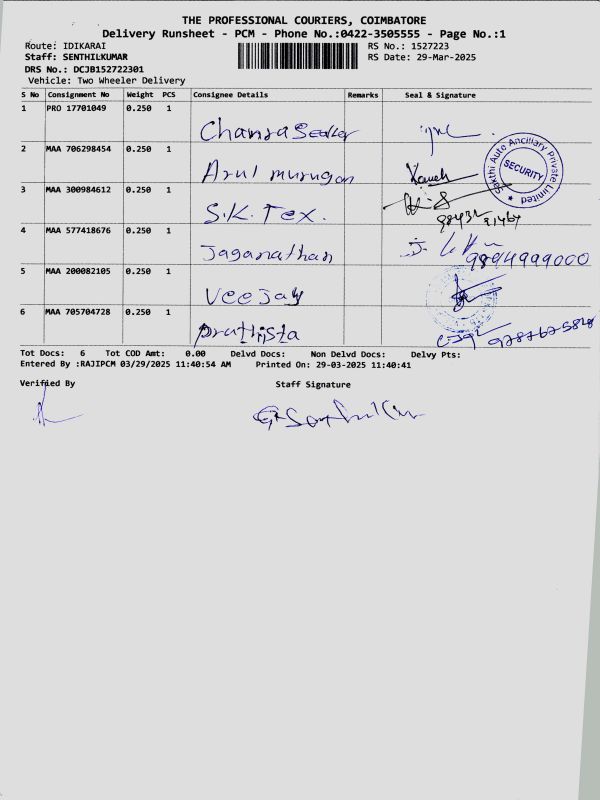 THE PROFESSIONAL COURIERS, COIMBATORE
Delivery Runsheet - PCM - Phone No.:0422-3505555 - Page No.:1
Route: IDIKARAI RS No.: 1527223
Staff: SENTHILKUMAR RS Date: 29-Mar-2025
DRS No.: DCJB152722301
Vehicle: Two Wheeler Delivery
S No Consignment No Weight PCS Consignee Details Remarks Seal & Signature
1 PRO 17701049 0.250 1
Chandrasekar
2 MAA 706298454 0.250 1
Arul murugan
Sakthi Auto Ancillary Private Limited
SECURITY
3 MAA 300984612 0.250 1
S.K. Tex.
4 MAA 577418676 0.250 1
Jaganathan 9894999000
5 MAA 200082105 0.250 1
Veejay
6 MAA 705704728 0.250 1
Prathista
Tot Docs: 6 Tot COD Amt: 0.00 Delvd Docs: Non Delvd Docs: Delvy Pts:
Entered By :RAJIPCM 03/29/2025 11:40:54 AM Printed On: 29-03-2025 11:40:41
Verified By Staff Signature